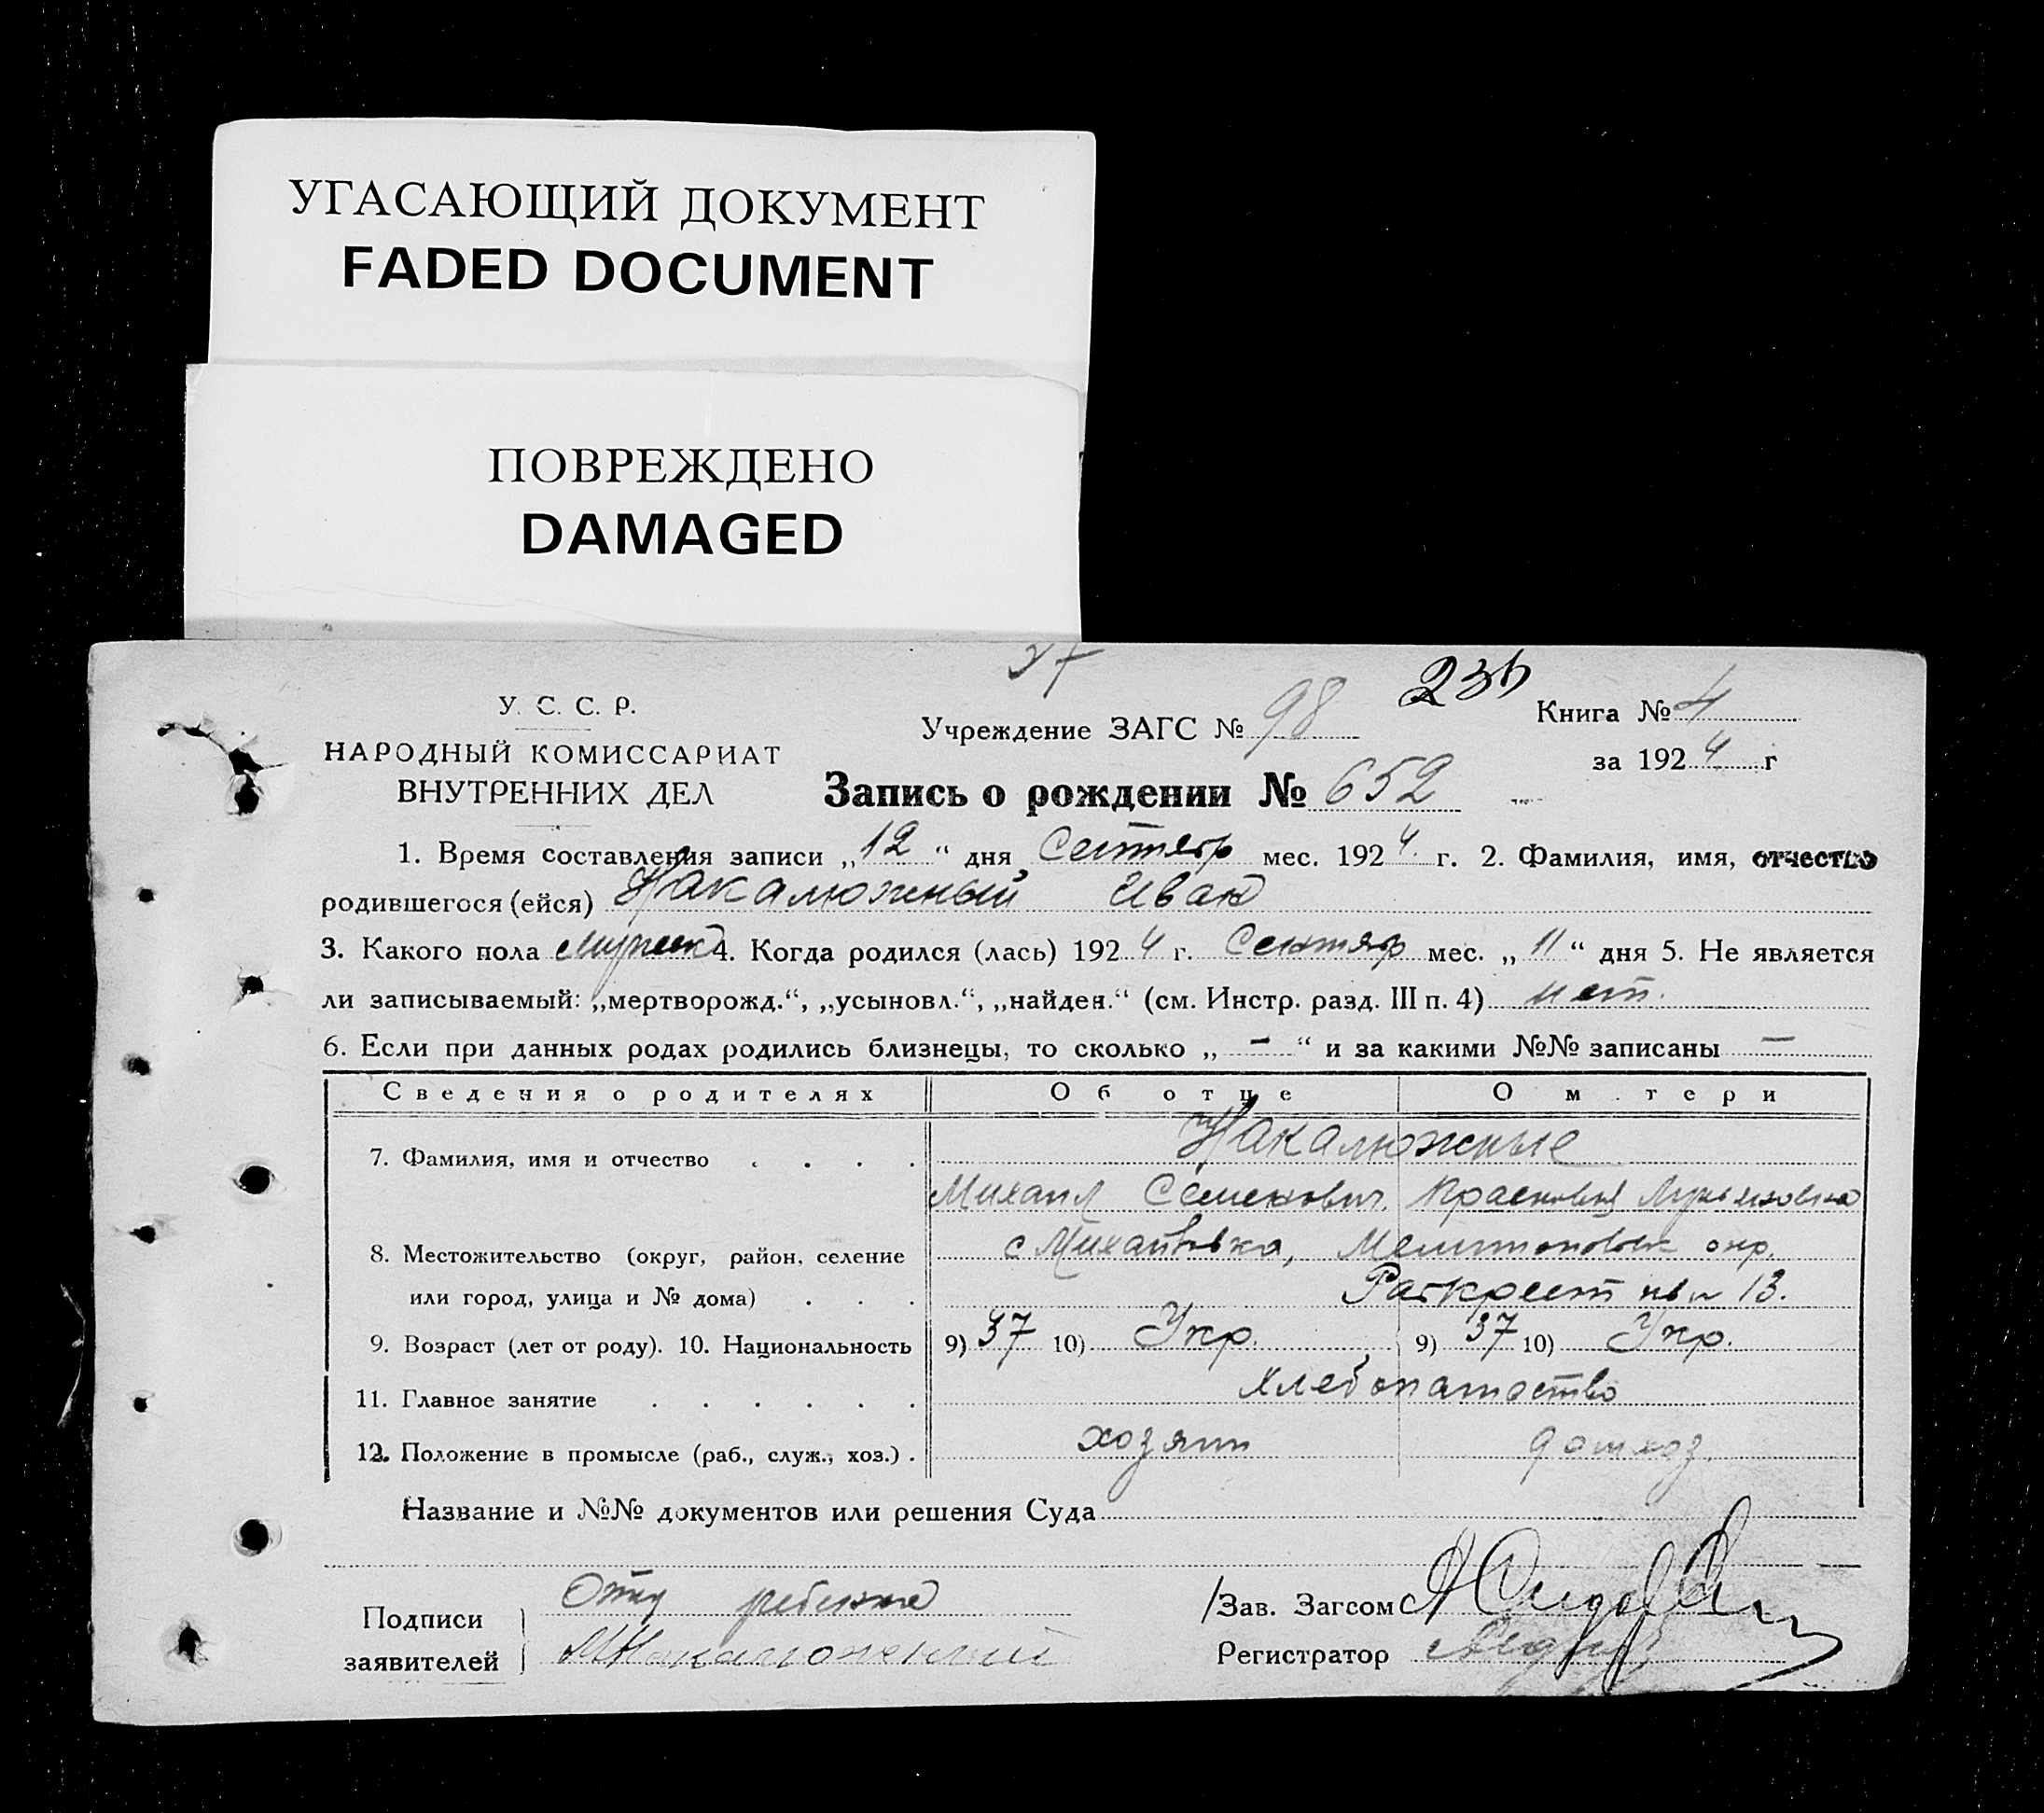 УГАСАЮЩИЙ ДОКУМЕНТ
FADED DOCUMENT
ПОВРЕЖДЕНО
DAMAGED
У. С. С. Р.
НАРОДНЫЙ КОМИССАРИАТ
ВНУТРЕННИХ ДЕЛ
Учреждение ЗАГС № 98
Книга № 4
за 1924 г
Запись о рождении № 652
1. Время составления записи „12“ дня Сентябр мес. 1924 г. 2. Фамилия, имя, отчество
родившегося (ейся) Накалюжный Иван
3. Какого пола мужск 4. Когда родился (лась) 1924 г. Сентябр мес. „11“ дня 5. Не является
ли записываемый: „мертворожд.“, „усыновл.“, „найден.“ (см. Инстр. разд. III п. 4) нет.
6. Если при данных родах родились близнецы, то сколько „ – “ и за какими №№ записаны –
Сведения о родителях Об отце О м тери
Накалюжные
7. Фамилия, имя и отчество . . . .
Михаил Семенович Прасковья Лукьяновна
8. Местожительство (округ, район, селение с Михайловка, Мелитопольск окр.
или город, улица и № дома) . . . 13.
9. Возраст (лет от роду). 10. Национальность 9) 37 10) Укр. 9) 37 10) Укр.
11. Главное занятие . . . . . . хлебопашество
12. Положение в промысле (раб., служ., хоз.) . хозяин домхоз.
Название и №№ документов или решения Суда
Подписи заявителей
Отец ребенка
МНакалюжный
Зав. Загсом
Регистратор